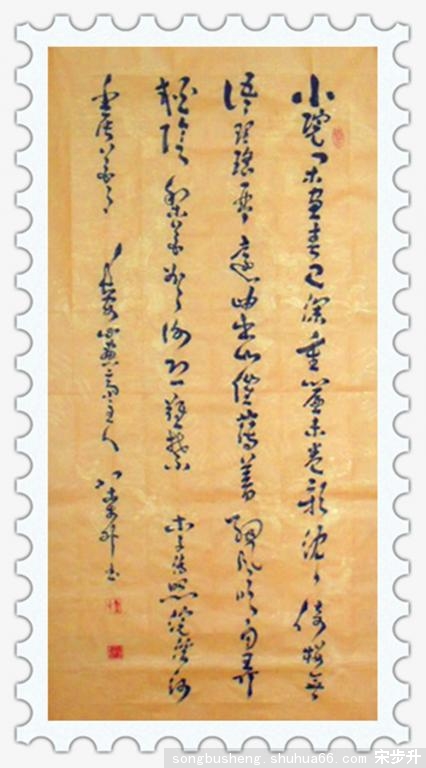 小院闲窗春已深重簾未卷影沈沈倚楼無
语理瑶琴遠岫出山催薄暮细风吹雨弄
轻阴梨花欲谢恐难禁 李清照浣溪沙
主人 步升书
songbusheng. shuhua66. com 宋步升